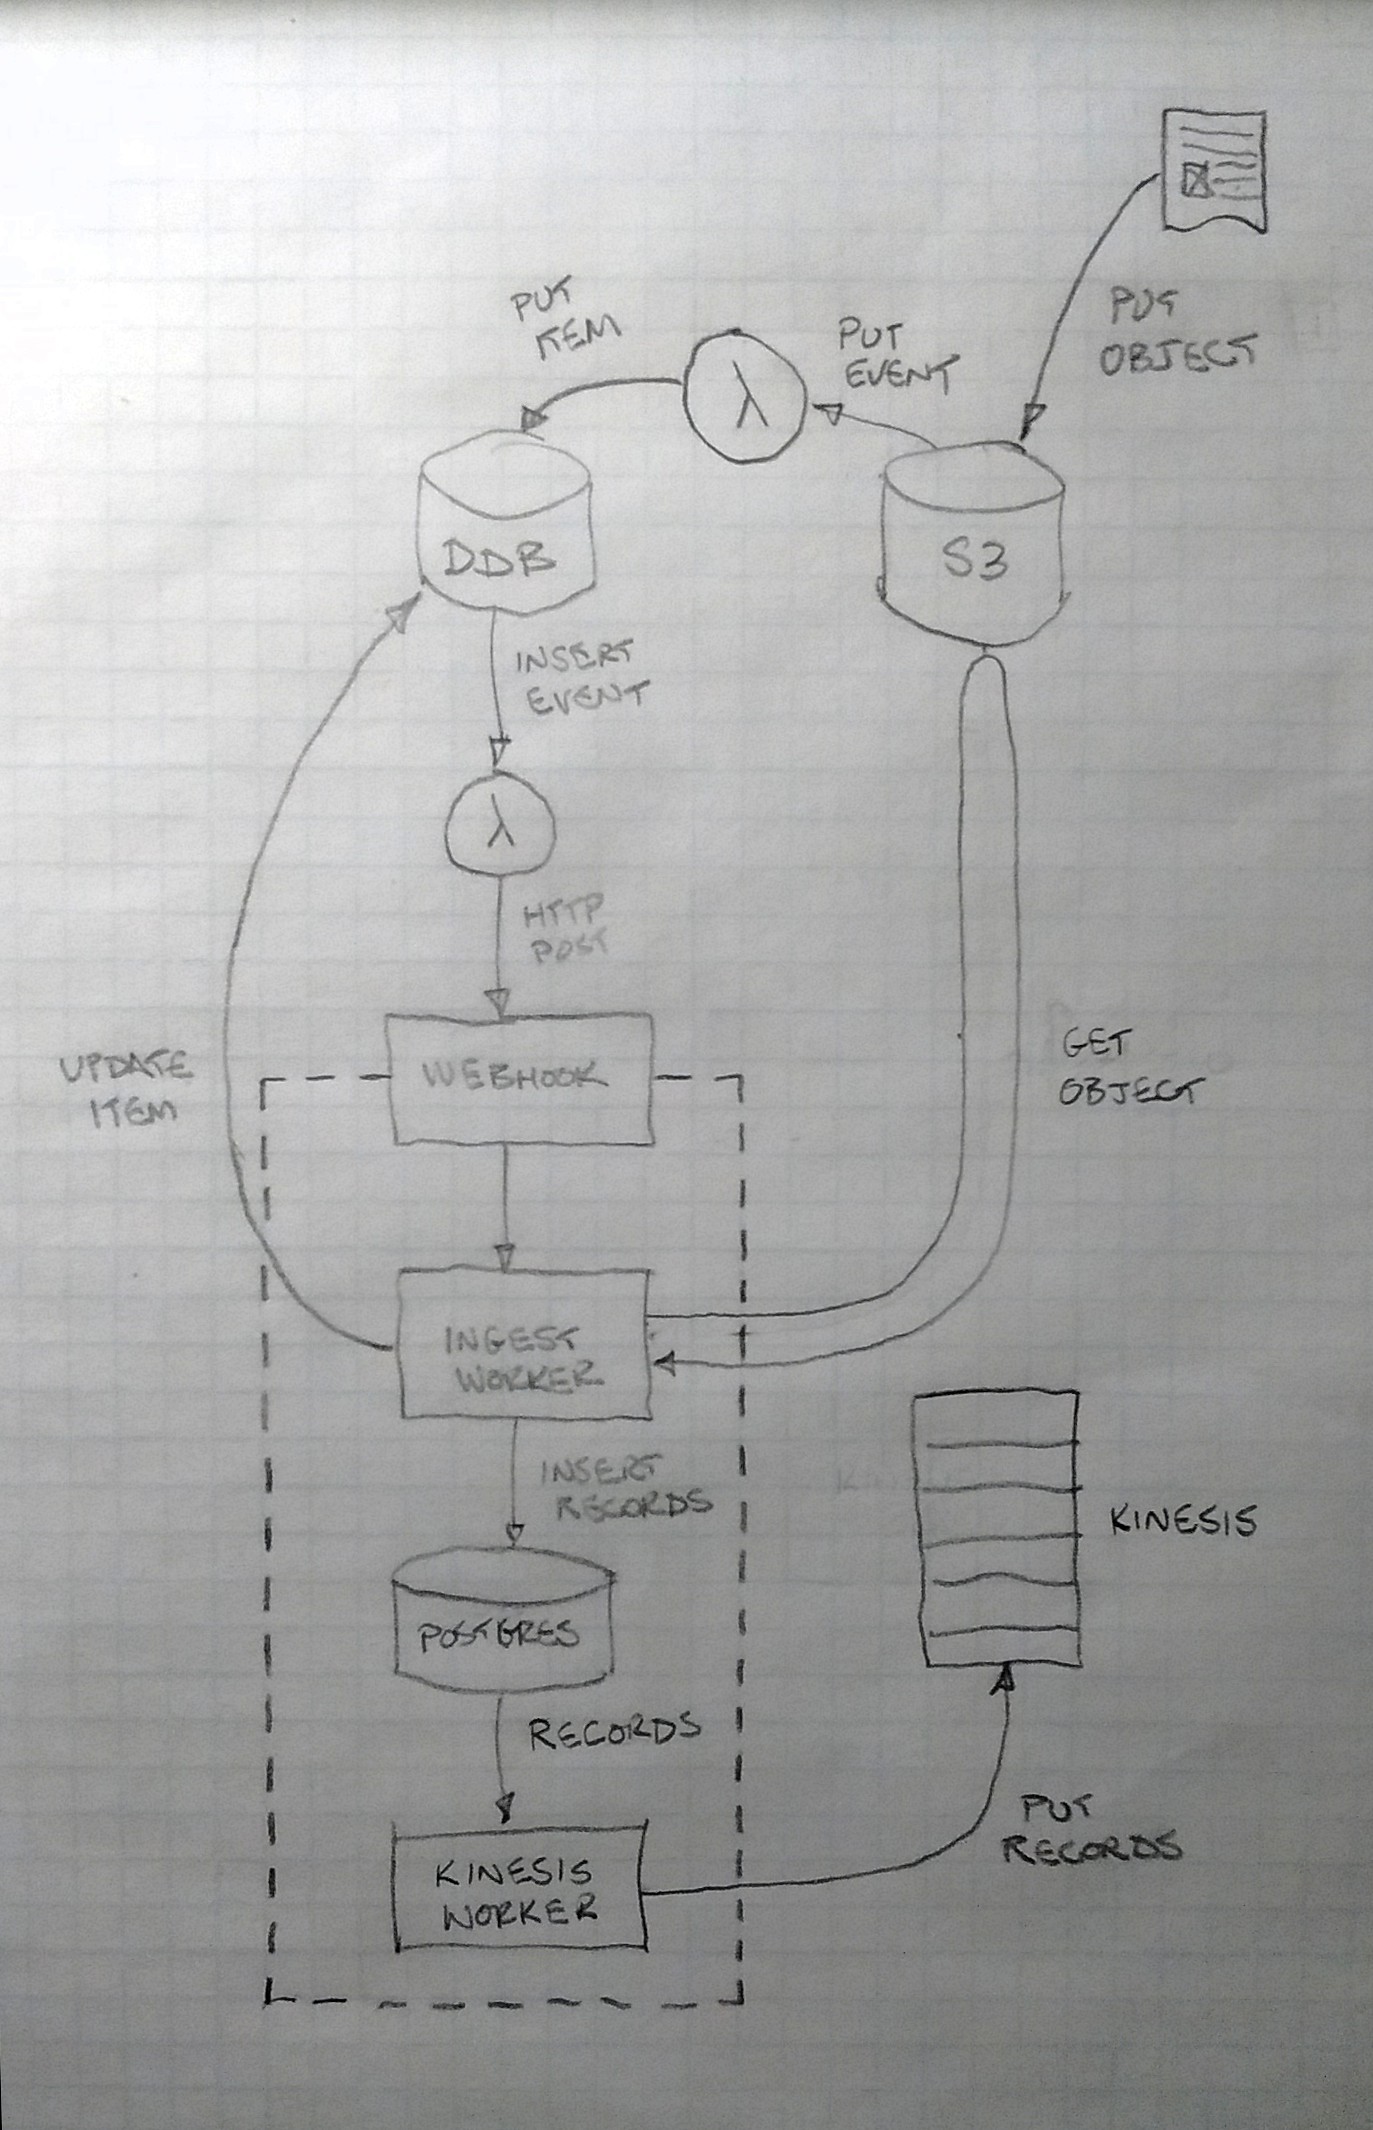 PUT
OBJECT
PUT
EVENT
λ
PUT
ITEM
DDB
S3
INSERT
EVENT
λ
HTTP
POST
WEBHOOK
UPDATE
ITEM
GET
OBJECT
INGEST
WORKER
INSERT
RECORDS
POSTGRES
KINESIS
RECORDS
KINESIS
WORKER
PUT
RECORDS